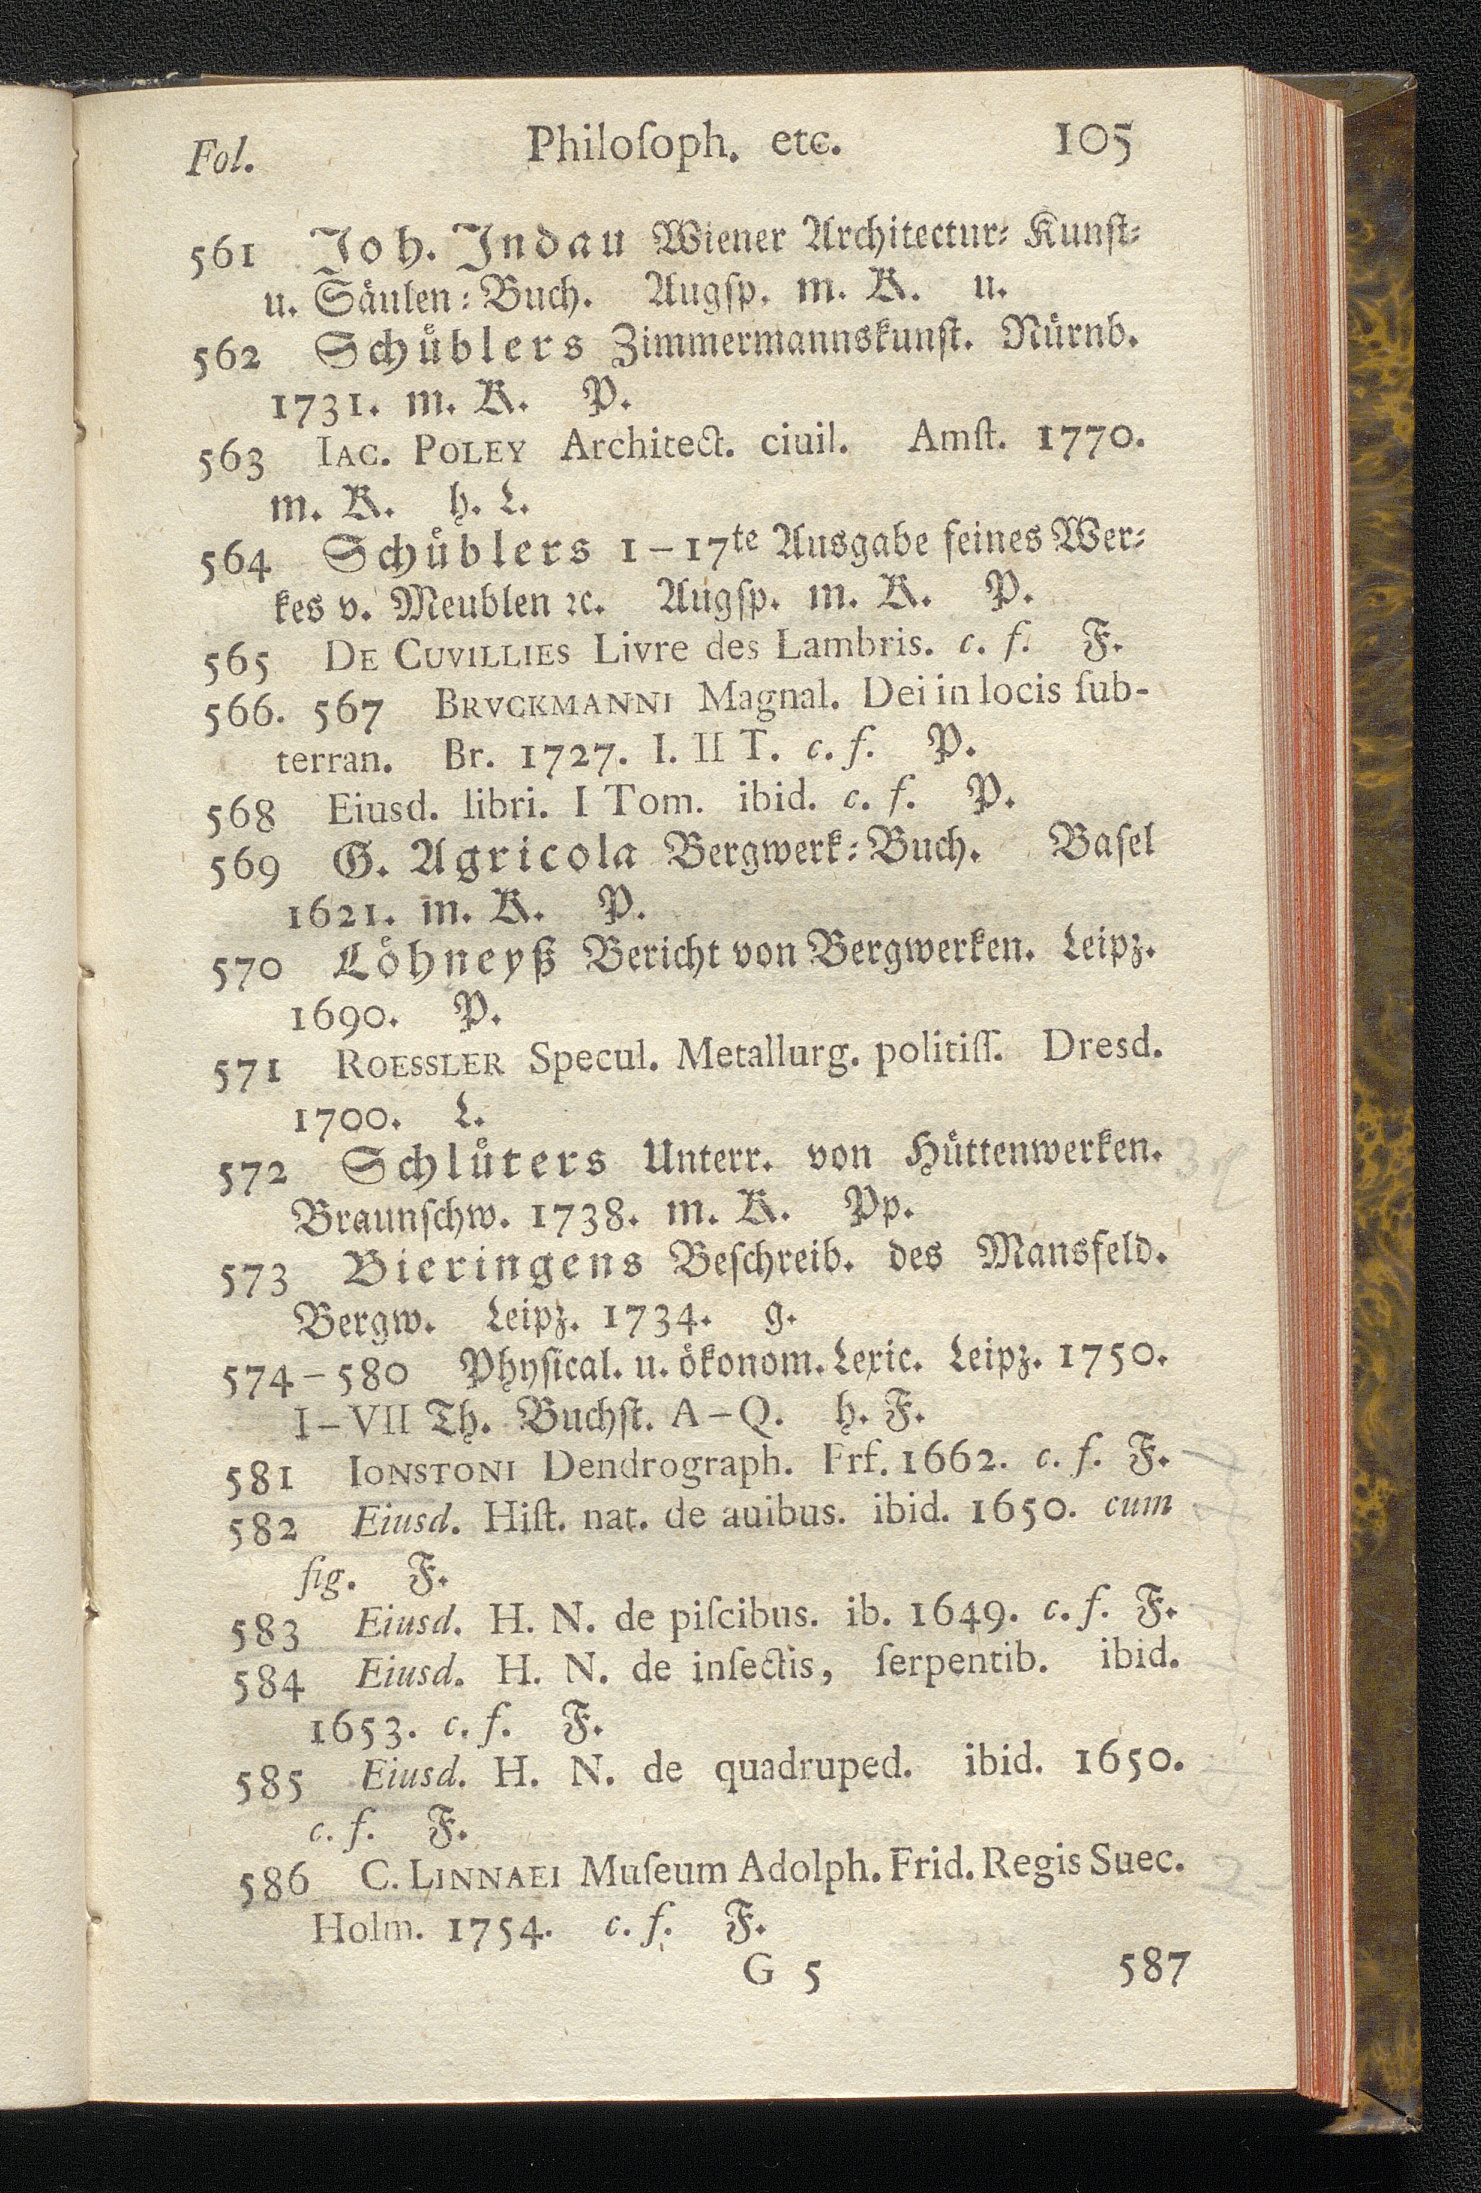 Fol. Philoſoph. etc. 105
561 Joh. Indau Wiener Architectur⸗ Kunſt⸗
u. Säulen⸗Buch. Augſp. m. K. u.
562 Schüblers Zimmermannskunſt. Nürnb.
1731. m. K. P.
563 IAC. POLEY Architect. ciuil. Amſt. 1770.
m. K. h. L.
564 Schüblers 1–17te Ausgabe ſeines Wer⸗
kes v. Meublen ꝛc. Augſp. m. K. P.
565 DE CUVILLIES Livre des Lambris. c. f. F.
566. 567 BRVCKMANNI Magnal. Dei in locis ſub-
terran. Br. 1727. I. II T. c. f. P.
568 Eiusd. libri. I Tom. ibid. c. f. P.
569 G. Agricola Bergwerk⸗Buch. Baſel
1621. m. K. P.
570 Löhneyß Bericht von Bergwerken. Leipz.
1690. P.
571 ROESSLER Specul. Metallurg. politiſſ. Dresd.
1700. L.
572 Schlüters Unterr. von Hüttenwerken.
Braunſchw. 1738. m. K. Pp.
573 Bieringens Beſchreib. des Mansfeld.
Bergw. Leipz. 1734. g.
574–580 Phyſical. u. ökonom. Lexic. Leipz. 1750.
I–VII Th. Buchſt. A–Q. h. F.
581 IONSTONI Dendrograph. Frf. 1662. c. f. F.
582 Eiusd. Hiſt. nat. de auibus. ibid. 1650. cum
fig. F.
583 Eiusd. H. N. de piſcibus. ib. 1649. c. f. F.
584 Eiusd. H. N. de inſectis, ſerpentib. ibid.
1653. c. f. F.
585 Eiusd. H. N. de quadruped. ibid. 1650.
c. f. F.
586 C. LINNAEI Muſeum Adolph. Frid. Regis Suec.
Holm. 1754. c. f. F.
G 5 587